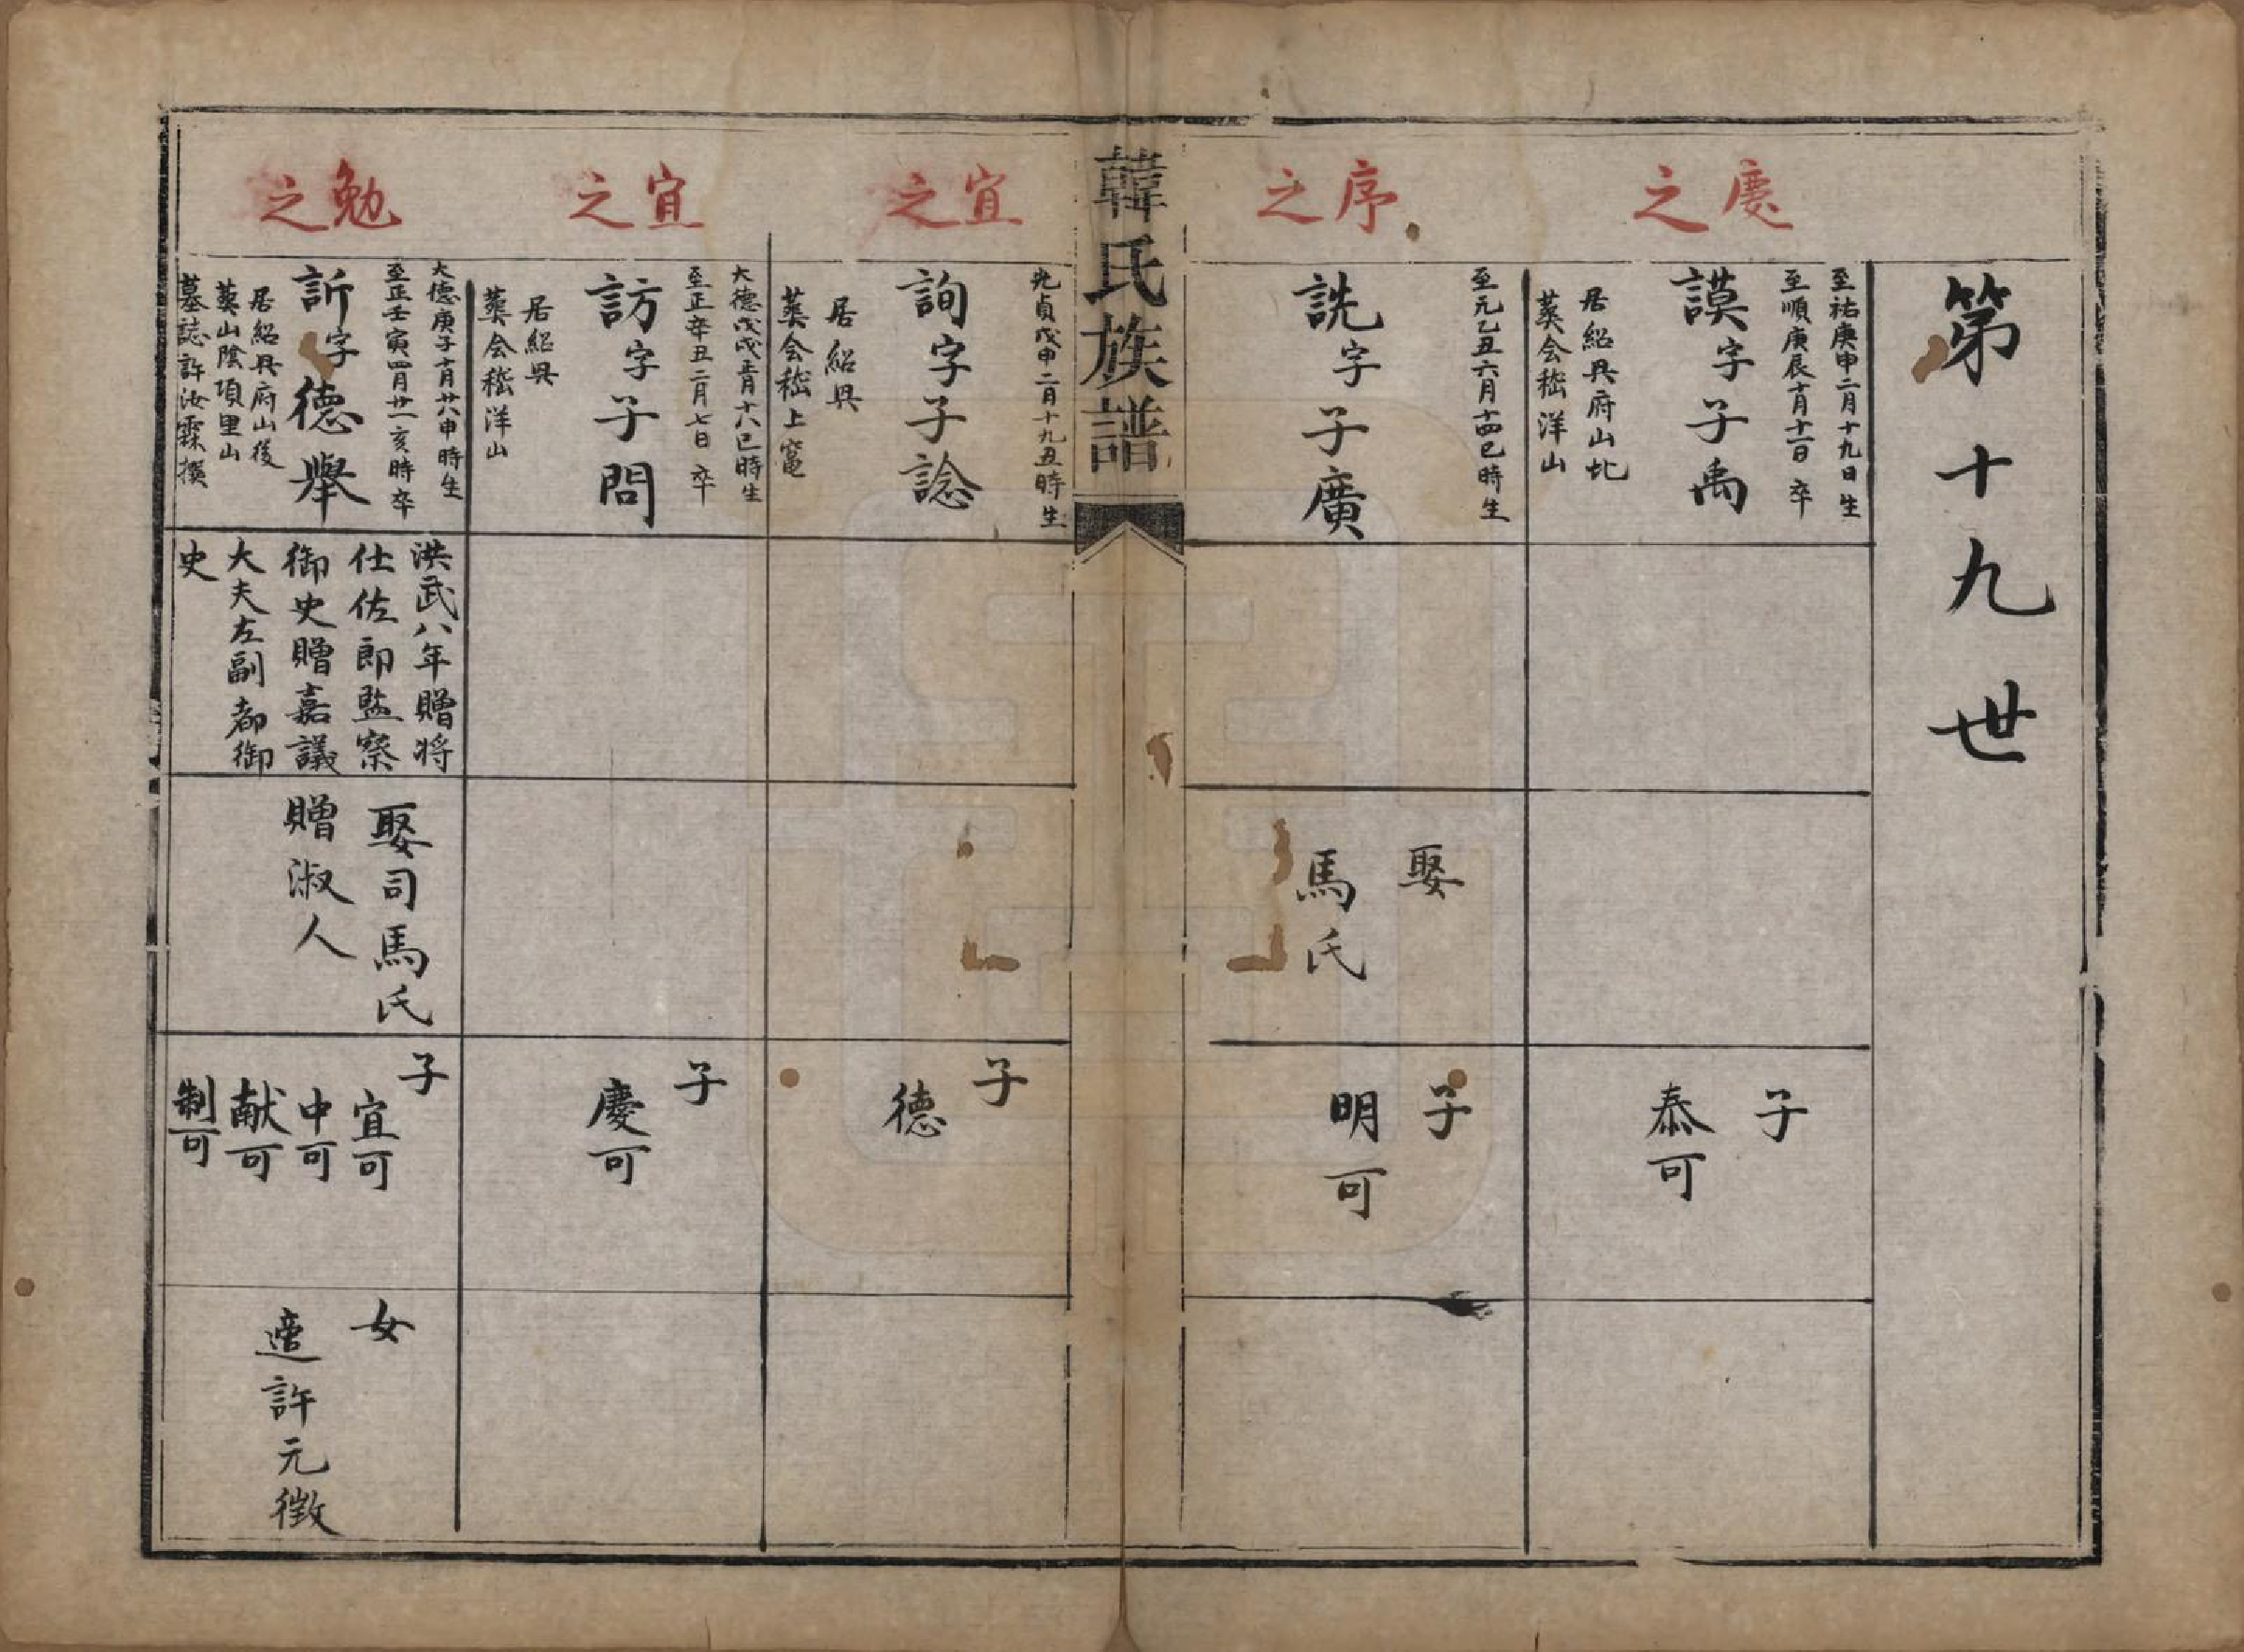 第十九世
慶之
至祐庚申二月十九日生
至順庚辰十月十一日卒
謨字子禹
居紹興府山北
葬会嵇洋山
子
泰可
序之
至元乙丑六月十四巳時生
詵字子廣
娶
馬氏
子
明可
韓氏族譜
宜之
元貞戊申二月十九丑時生
詢字子諗
居紹興
葬会嵇上竈
子
德
宜之
大德戊戌正月十六巳時生
至正辛丑二月七日卒
訪字子問
居紹興
葬会嵇洋山
子
慶可
勉之
大德庚子十月廿六申時生
至正壬寅四月廿一亥時卒
訢字德舉
居紹興府山後
葬山陰項里山
墓誌許汝霖撰
洪武八年贈将
仕佐郎監察
御史贈嘉議
大夫左副都御
史
娶司馬氏
贈淑人
子
宜可
中可
献可
制可
女
適許元徴